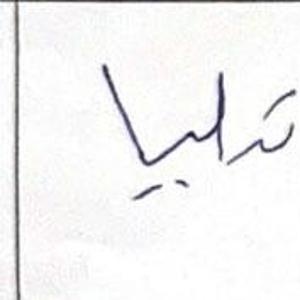 ترليا